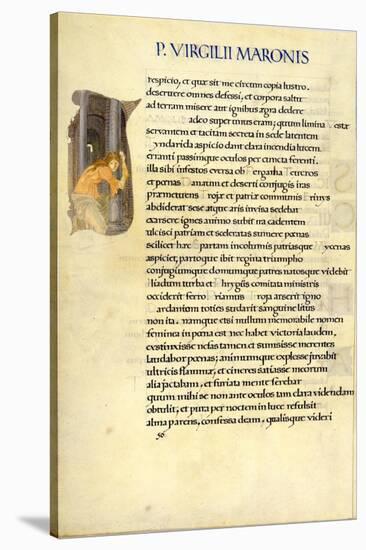 P. VIRGILII MARONIS
respicio, et quæ sit me circum copia lustro.
deseruere omnes defessi, et corpora saltu
ad terram misere aut ignibus ægra dedere
adeo super unus eram; quum limina estæ
servantem et tacitam secreta in sede latentem
yndarida aspicio dant clara incendia lucem
erranti passimque oculos per cuncta ferenti.
illa sibi infestos eversa ob ergama eucros
et pœnas anaum et deserti conjugis iras
præmetuens rojæ et patriæ communis rinys
abdiderat sese atque aris invisa sedebat
exarsere ignes animo subit ira cadentem
ulcisci patriam et sceleratas sumere pœnas
scilicet hæc partam incolumis patriasque ycenas
aspiciet, partoque ibit regina triumpho
conjugiumque domumque patres natosque videbit
liadum turba et hrygiis comitata ministris
occiderit ferro riamus roja arserit igno
ardanium toties sudarit sanguine litus
non ita. namque etsi nullum memorabile nomen
feminea in pœna est nec habet victoria laudem,
exstinxisse nefas tamen et sumsisse merentes
laudabor pœnas; animumque explesse juvabit
ultricis flammæ, et cineres satiasse meorum
alia jactabam, et furiata mente ferebar
quum mihi se non ante oculos tam clara videndam
obtulit, et pura per noctem in luce refulsit
alma parens, confessa deam. qualisque videri
56